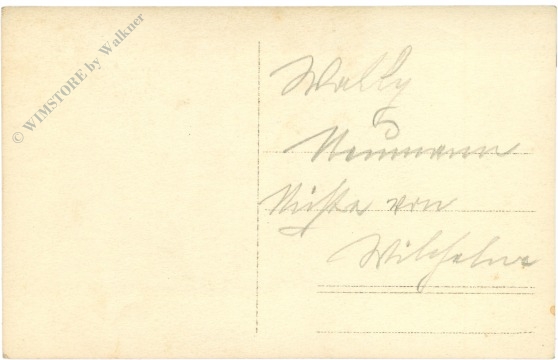 © WIMSTORE by Walkner
Wally
Neumann
Nichte von
Wilhelm